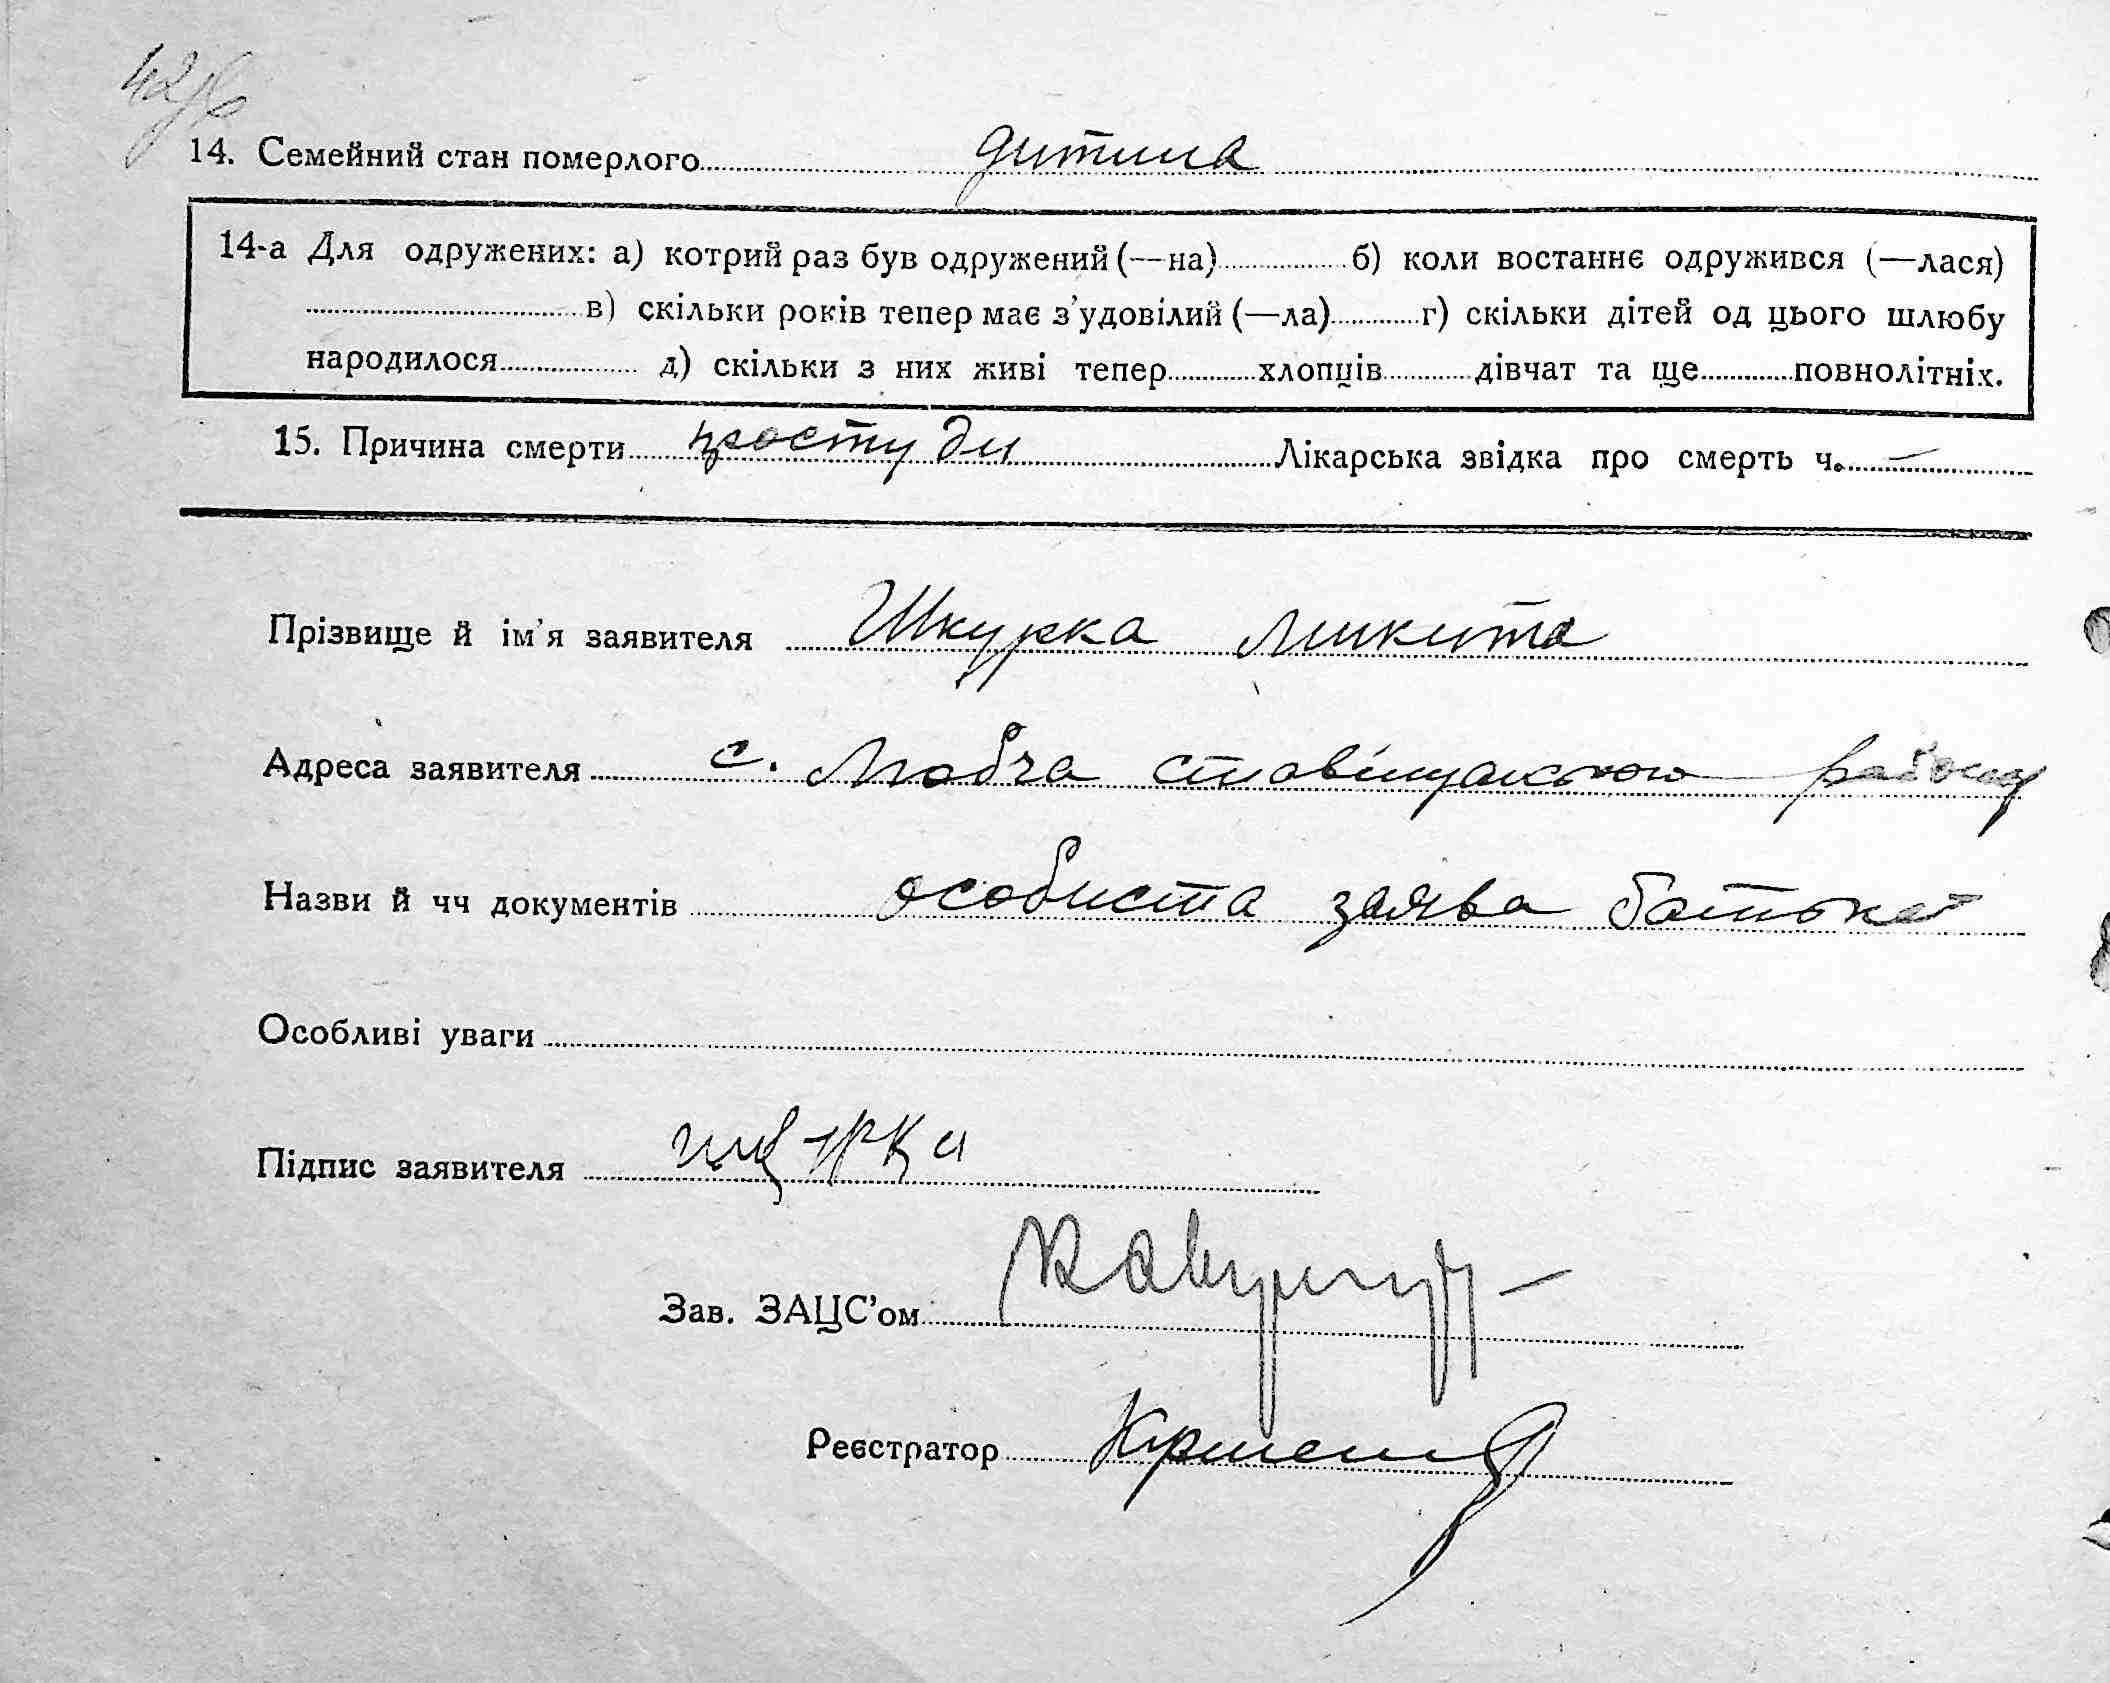 14. Семейний стан померлого дитина
14-а Для одружених: а) котрий раз був одружений (—на) б) коли востаннє одружився (—лася)
в) скільки років тепер має з'удовілий (—ла) г) скільки дітей од цього шлюбу
народилося д) скільки з них живі тепер хлопців дівчат та ще повнолітніх.
15. Причина смерти простуди Лікарська звідка про смерть ч. —
Прізвище й ім'я заявителя Шкурка Микита
Адреса заявителя с.
Назви й чч документів особиста заява батька
Особливі уваги
Підпис заявителя
Зав. ЗАЦС'ом
Реєстратор